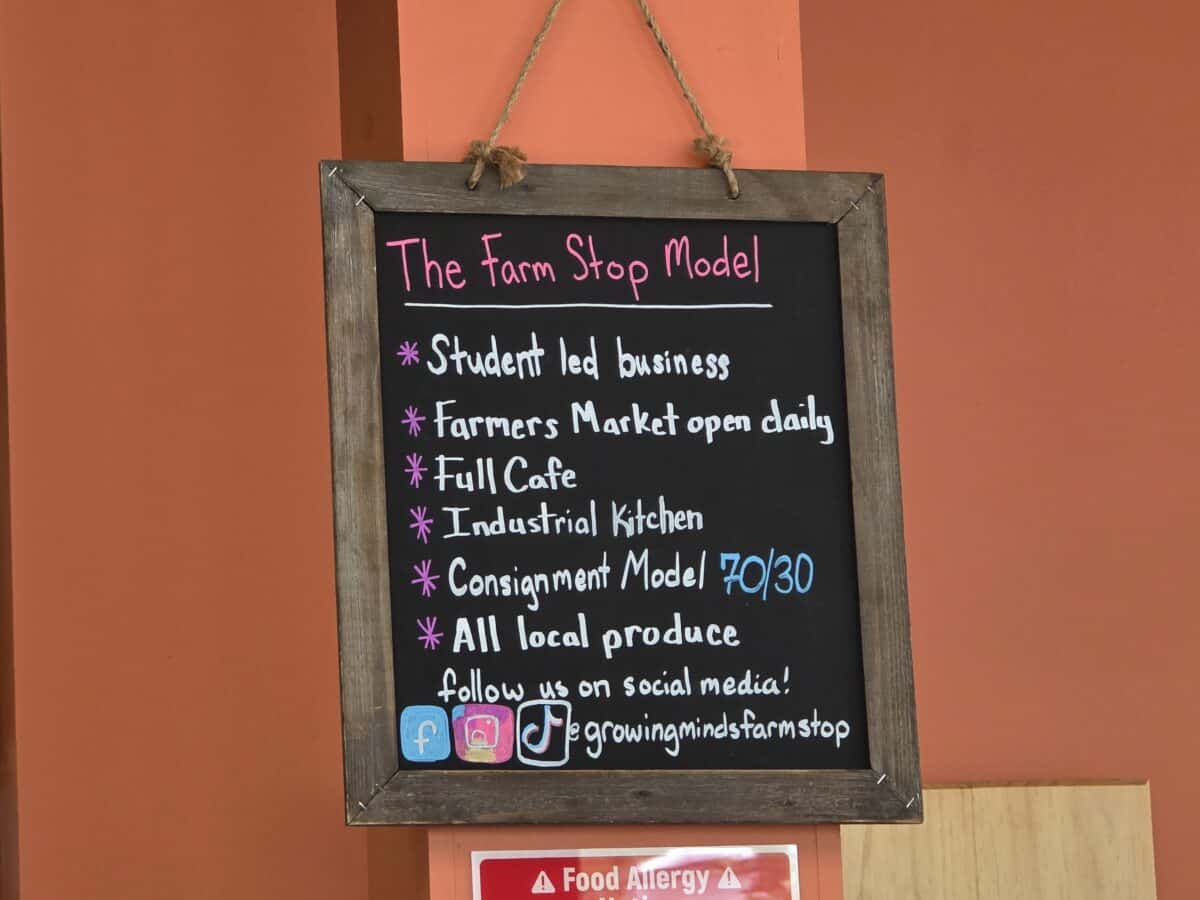 The Farm Stop Model
* Student led business
* Farmers Market open daily
* Full Cafe
* Industrial Kitchen
* Consignment Model 70/30
* All local produce
follow us on social media!
f @growingmindsfarmstop
⚠ Food Allergy ⚠